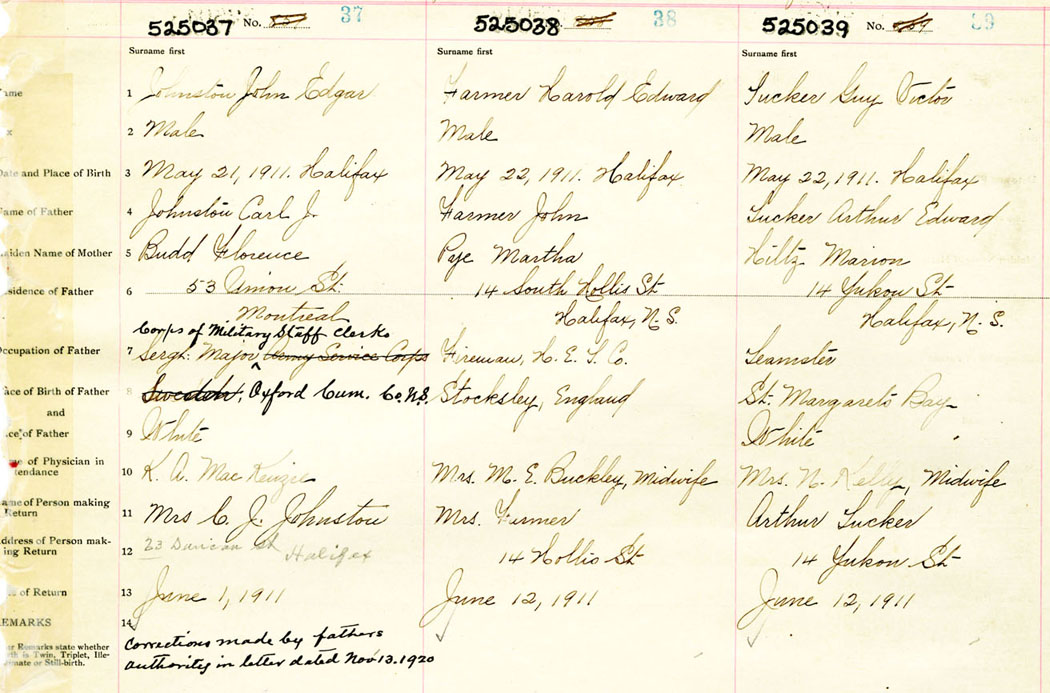 525037 No. 37 525038 38 525039 No. 39
Surname first Surname first Surname first
ame 1 Johnston John Edgar Farmer Harold Edward Tucker Guy Victor
x 2 Male Male Male
Date and Place of Birth 3 May 21, 1911. Halifax May 22, 1911. Halifax May 22, 1911. Halifax
ame of Father 4 Johnston Carl J. Farmer John Tucker Arthur Edward
aiden Name of Mother 5 Budd Florence Pye Martha Hiltz Marion
sidence of Father 6 53 Union St. 14 South Hollis St 14 Yukon St
Montreal Halifax, N.S. Halifax, N.S.
Corps of Military Staff Clerks
Occupation of Father 7 Sergt. Major Army Service Corps Fireman, H. E. T. Co. Teamster
ace of Birth of Father 8 Sweden, Oxford Cum. Co. N.S. Stocksley, England St. Margarets Bay
and
ce of Father 9 White White
me of Physician in
tendance 10 K. A. MacKenzie Mrs. M. E. Buckley, Midwife Mrs. N. Kelly, Midwife
ame of Person making
Return 11 Mrs C. J. Johnston Mrs. Farmer Arthur Tucker
ddress of Person mak-
ing Return 12 23 Duncan St Halifax 14 Hollis St 14 Yukon St
of Return 13 June 1, 1911 June 12, 1911 June 12, 1911
EMARKS 14
or Remarks state whether
th is Twin, Triplet, Ille-
imate or Still-birth.
Corrections made by fathers
authority in letter dated Nov 13. 1920